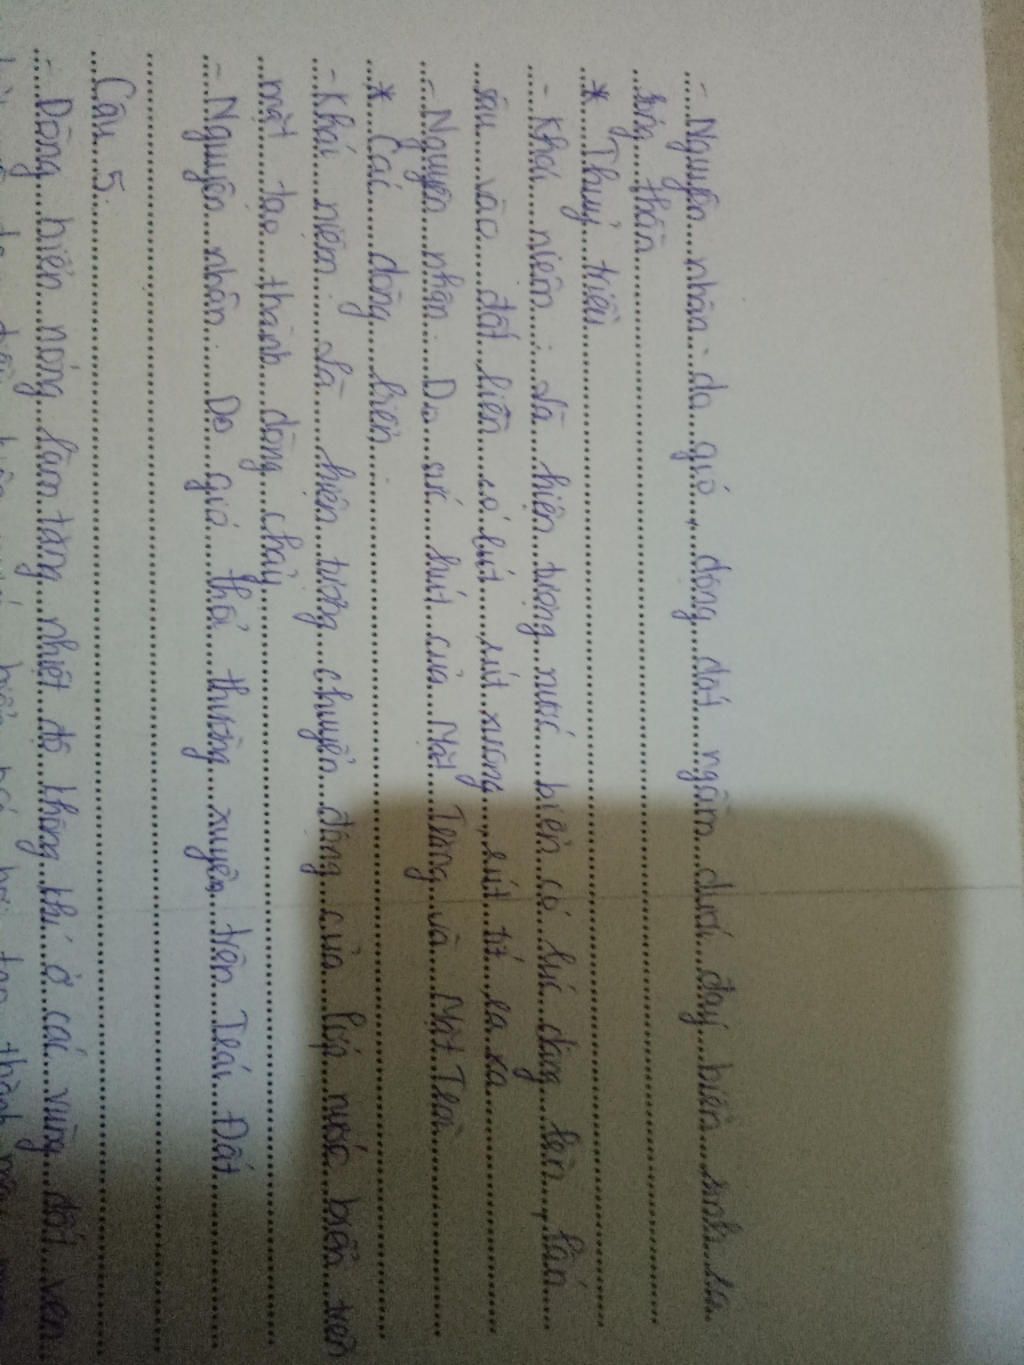 - Nguyên nhân: do gió, động đất ngầm dưới đáy biển sinh ra
sóng thần
* Thuỷ triều
- Khái niệm: Là hiện tượng nước biển có lúc dâng lên, lấn
sâu vào đất liền có lút rút xuống, rút tít ra xa
- Nguyên nhân: Do sức hút của Mặt Trăng và Mặt Trời
* Các dòng biển
- Khái niệm: Là hiện tượng chuyển động của lớp nước biển trên
mặt tạo thành dòng chảy
- Nguyên nhân: Do gió thổi thường xuyên trên Trái Đất
Câu 5.
- Dòng biển nóng làm tăng nhiệt độ không khí ở các vùng đất ven